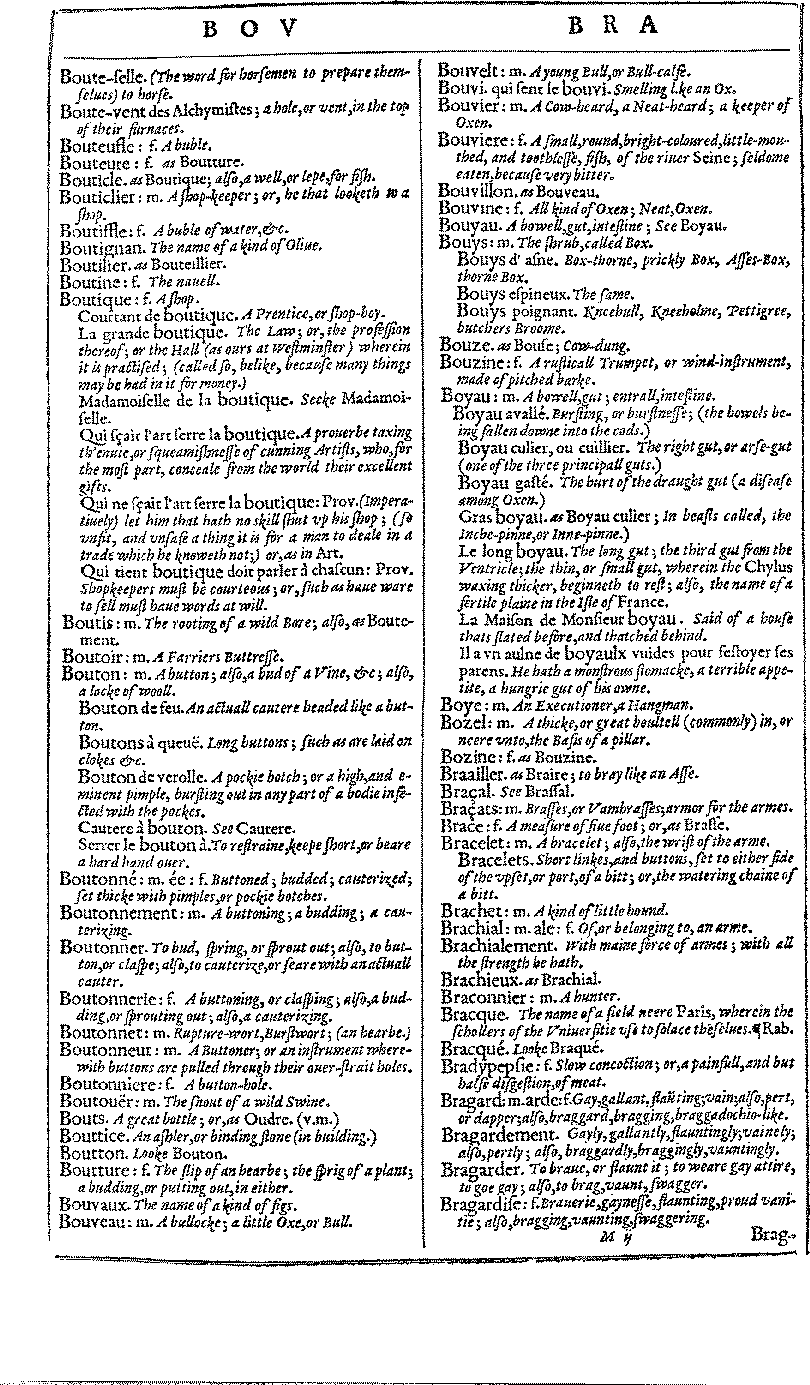 B O V
B R A
Boute-selle. (The word for horsemen to prepare them-
selues) to horse.
Boute-vent des Alchymistes; a hole, or vent, in the top
of their furnaces.
Bouteusle: f. A buble.
Bouteure: f. as Boutture.
Bouticle. as Boutique; also, a well, or lepe, for fish.
Bouticlier: m. A shop-keeper; or, he that looketh to a
shop.
Boutiffle: f. A buble of water, &c.
Boutignan. The name of a kind of Oliue.
Boutilier. as Bouteillier.
Boutine: f. The nauell.
Boutique: f. A shop.
Courtant de boutique. A Prentice, or shop-boy.
La grande boutique. The Law; or, the profession
thereof; or the Hall (as ours at Westminster) wherein
it is practised; (called so, belike, because many things
may be had in it for money.)
Madamoiselle de la boutique. Seeke Madamoi-
selle.
Qui sçait l'art serre la boutique. A prouerbe taxing
th'enuie, or squeamishnesse of cunning Artists, who, for
the most part, conceale from the world their excellent
gifts.
Qui ne sçait l'art serre la boutique: Prov. (Impera-
tiuely) let him that hath no skill shut vp his shop; (so
vnfit, and vnsafe a thing it is for a man to deale in a
trade which he knoweth not;) or, as in Art.
Qui tient boutique doit parler à chascun: Prov.
Shopkeepers must be courteous; or, such as haue ware
to sell must haue words at will.
Boutis: m. The rooting of a wild Bore; also, as Boute-
ment.
Boutoir: m. A Farriers Buttresse.
Bouton: m. A button; also, a bud of a Vine, &c; also,
a locke of wooll.
Bouton de feu. An actuall cautere headed like a but-
ton.
Boutons à queuë. Long buttons; such as are laid on
clokes &c.
Bouton de verolle. A pockie botch; or a high, and e-
minent pimple, bursting out in any part of a bodie infe-
cted with the pockes.
Cautere à bouton. See Cautere.
Serrer le bouton à. To restraine, keepe short, or beare
a hard hand ouer.
Boutonné: m. ée: f. Buttoned; budded; cauterized;
set thicke with pimples, or pockie botches.
Boutonnement: m. A buttoning; a budding; a cau-
terizing.
Boutonner. To bud, spring, or sprout out; also, to but-
ton, or claspe; also, to cauterize, or seare with an actuall
cauter.
Boutonnerie: f. A buttoning, or clasping; also, a bud-
ding, or sprouting out; also, a cauterizing.
Boutonnet: m. Rupture-wort, Burstwort; (an hearbe.)
Boutonneur: m. A Buttoner; or an instrument where-
with buttons are pulled through their ouer-strait holes.
Boutonniere: f. A button-hole.
Boutouër: m. The snout of a wild Swine.
Bouts. A great bottle; or, as Oudre. (v.m.)
Bouttice. An ashler, or binding stone (in building.)
Boutton. Looke Bouton.
Boutture: f. The slip of an hearbe; the sprig of a plant;
a budding, or putting out, in either.
Bouvaux. The name of a kind of figs.
Bouveau: m. A bullocke; a little Oxe, or Bull.
Bouvelt: m. A young Bull, or Bull-calfe.
Bouvi. qui sent le bouvi. Smelling like an Ox.
Bouvier: m. A Cow-heard, a Neat-heard; a keeper of
Oxen.
Bouviere: f. A small, round, bright-coloured, little-mou-
thed, and toothlesse, fish, of the riuer Seine; seldome
eaten, because very bitter.
Bouvillon. as Bouveau.
Bouvine: f. All kind of Oxen; Neat, Oxen.
Bouyau. A bowell, gut, intestine; See Boyau.
Bouys: m. The shrub, called Box.
Bouys d' asne. Box-thorne, prickly Box, Asses-Box,
thorne Box.
Bouys espineux. The same.
Bouys poignant. Kneebull, Kneeholme, Pettigree,
butchers Broome.
Bouze. as Bouse; Cow-dung.
Bouzine: f. A rusticall Trumpet, or wind-instrument,
made of pitched barke.
Boyau: m. A bowell, gut; entrall, intestine.
Boyau avallé. Bursting, or burstnesse; (the bowels be-
ing fallen downe into the cods.)
Boyau culier, ou cuillier. The right gut, or arse-gut
(one of the three principall guts.)
Boyau gasté. The hurt of the draught gut (a disease
among Oxen.)
Gras boyau. as Boyau culier; In beasts called, the
Inche-pinne, or Inne-pinne.)
Le long boyau. The long gut; the third gut from the
Ventricle; the thin, or small gut, wherein the Chylus
waxing thicker, beginneth to rest; also, the name of a
fertile plaine in the Isle of France.
La Maison de Monsieur boyau. Said of a house
thats slated before, and thatched behind.
Il a vn aulne de boyaulx vuides pour festoyer ses
parens. He hath a monstrous stomacke, a terrible appe-
tite, a hungrie gut of his owne.
Boye: m. An Executioner, a Hangman.
Bozel: m. A thicke, or great boultell (commonly) in, or
neere vnto, the Basis of a pillar.
Bozine: f. as Bouzine.
Braailler. as Braire; to bray like an Asse.
Braçal. See Brassal.
Braçats: m. Brasses, or Vambrasses; armor for the armes.
Brace: f. A measure of fiue foot; or, as Brasse.
Bracelet: m. A bracelet; also, the wrist of the arme.
Bracelets. Short linkes, and buttons, set to either side
of the vpset, or port, of a bitt; or, the watering chaine of
a bitt.
Brachet: m. A kind of little hound.
Brachial: m. ale: f. Of, or belonging to, an arme.
Brachialement. With maine force of armes; with all
the strength he hath.
Brachieux. as Brachial.
Braconnier: m. A hunter.
Bracque. The name of a field neere Paris, wherein the
schollers of the Vniuersitie vse to solace thēselues. ¶ Rab.
Bracqué. Looke Braqué.
Bradypepsie: f. Slow concoction; or, a painfull, and but
halfe disgestion, of meat.
Bragard: m. arde: f. Gay, gallant, flauting, vain; also, pert,
or dapper; also, braggard, bragging, braggadochio-like.
Bragardement. Gayly, gallantly, flauntingly, vainely;
also, pertly; also, braggardly, braggingly, vauntingly.
Bragarder. To braue, or flaunt it; to weare gay attire,
to goe gay; also, to brag, vaunt, swagger.
Bragardise: f. Brauerie, gaynesse, flaunting, proud vani-
tie; also, bragging, vaunting, swaggering.
M ij
Brag-